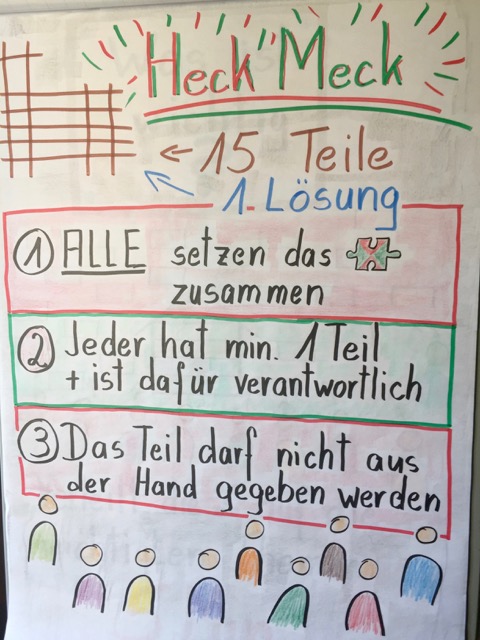 Heck"Meck
← 15 Teile
1 Lösung
① ALLE setzen das
zusammen
② Jeder hat min. 1 Teil
+ ist dafür verantwortlich
③ Das Teil darf nicht aus
der Hand gegeben werden